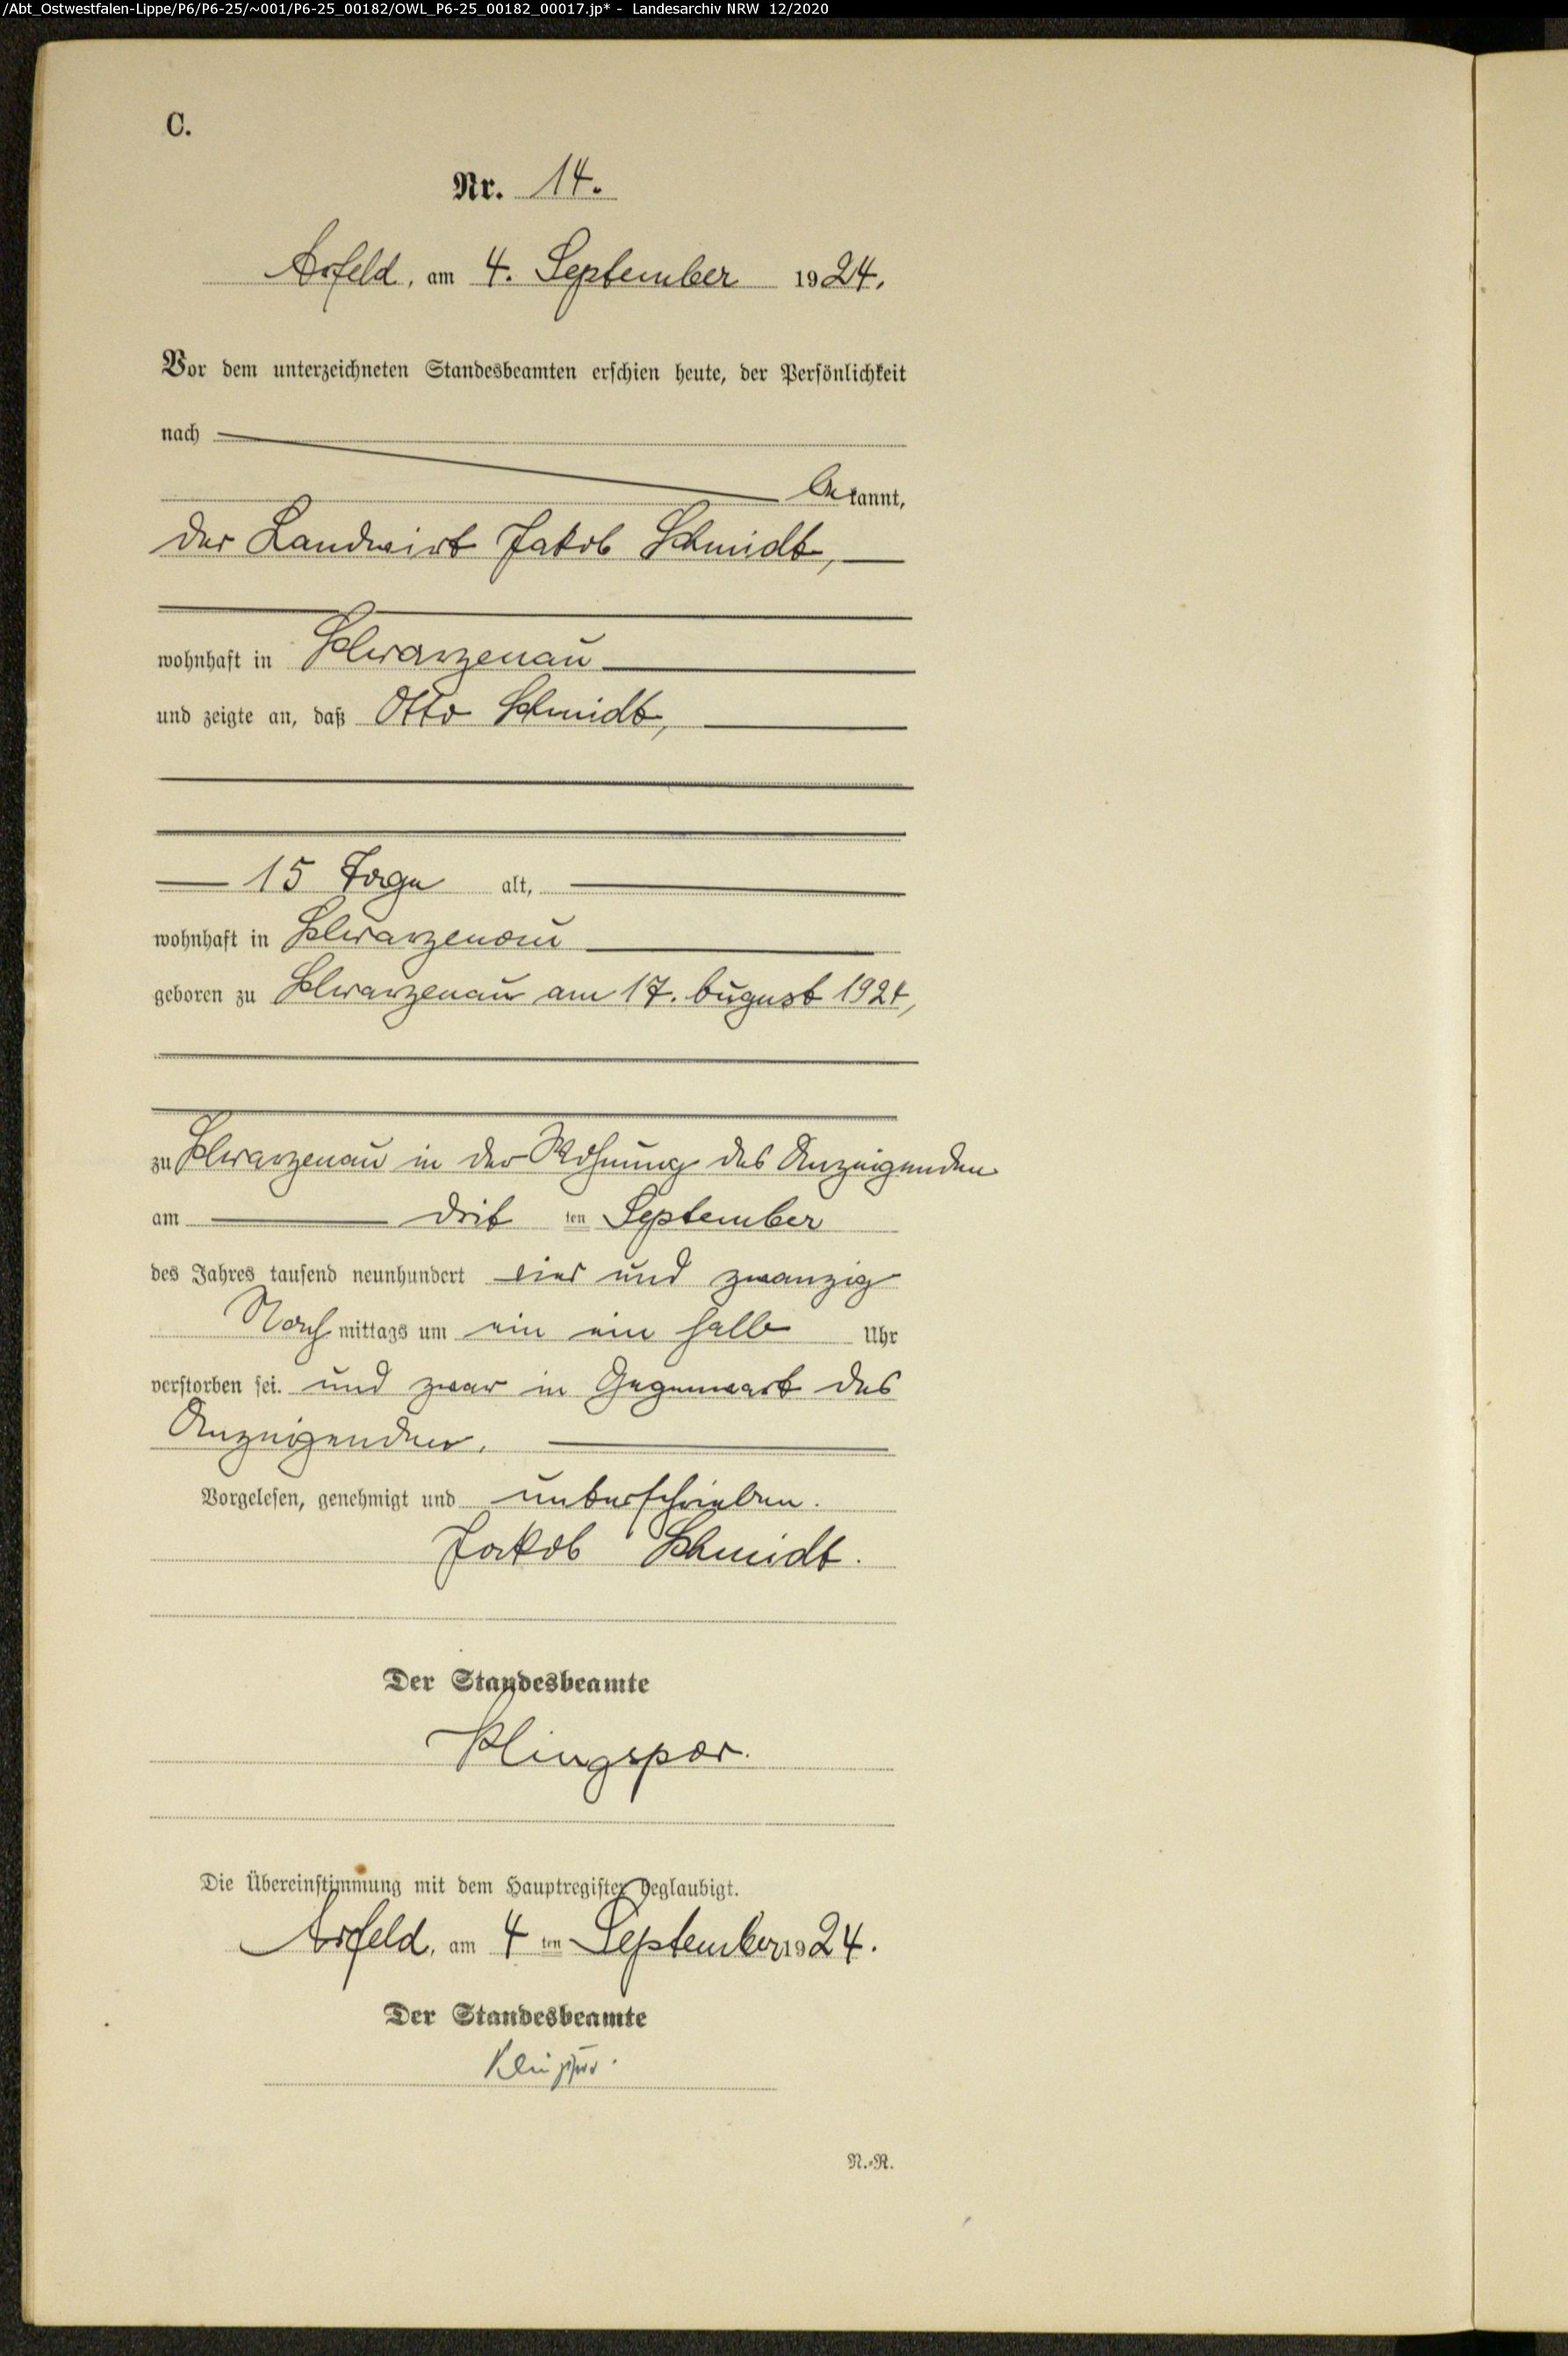 /Abt_Ostwestfalen-Lippe/P6/P6-25/~001/P6-25_00182/OWL_P6-25_00182_00017.jp* - Landesarchiv NRW 12/2020
C.
Nr. 14.
Arfeld, am 4. September 1924.
Vor dem unterzeichneten Standesbeamten erschien heute, der Persönlichkeit
nach
bekannt,
der Landwirt Jakob Schmidt,
wohnhaft in Schwarzenau
und zeigte an, daß Otto Schmidt,
15 Tage alt,
wohnhaft in Schwarzenau
geboren zu Schwarzenau am 17. August 1924,
zu Schwarzenau in der Wohnung des Anzeigenden
am drit ten September
des Jahres tausend neunhundert vier und zwanzig
Nachmittags um ein ein halb Uhr
verstorben sei. und zwar in Gegenwart des
Anzeigenden.
Vorgelesen, genehmigt und unterschrieben.
Jakob Schmidt.
Der Standesbeamte
Klingspor.
Die Übereinstimmung mit dem Hauptregister beglaubigt.
Arfeld, am 4 ten September 1924.
Der Standesbeamte
Klingspor.
N.-R.